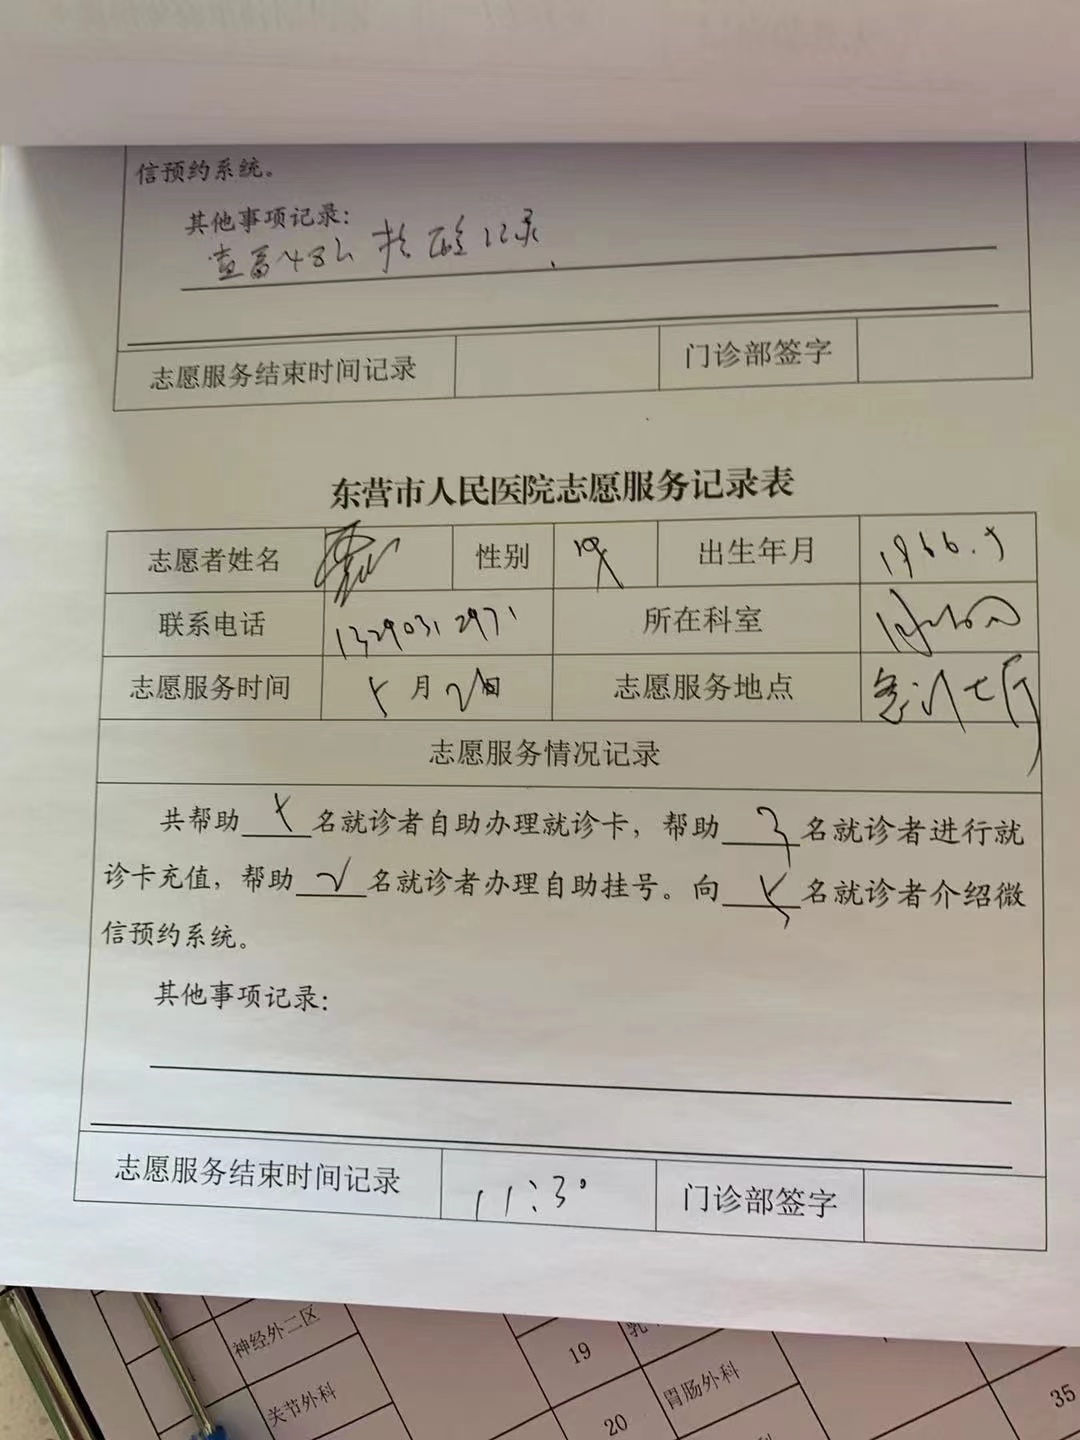 信预约系统。
其他事项记录：
查看48h核酸记录
志愿服务结束时间记录 门诊部签字
东营市人民医院志愿服务记录表
志愿者姓名 性别 出生年月 1966.9
联系电话 13290312971 所在科室
志愿服务时间 月 日 志愿服务地点
志愿服务情况记录
共帮助 名就诊者自助办理就诊卡，帮助 3 名就诊者进行就
诊卡充值，帮助 2 名就诊者办理自助挂号。向 名就诊者介绍微
信预约系统。
其他事项记录：
志愿服务结束时间记录 11:30 门诊部签字
神经外二区
19
关节外科
20
胃肠外科
35